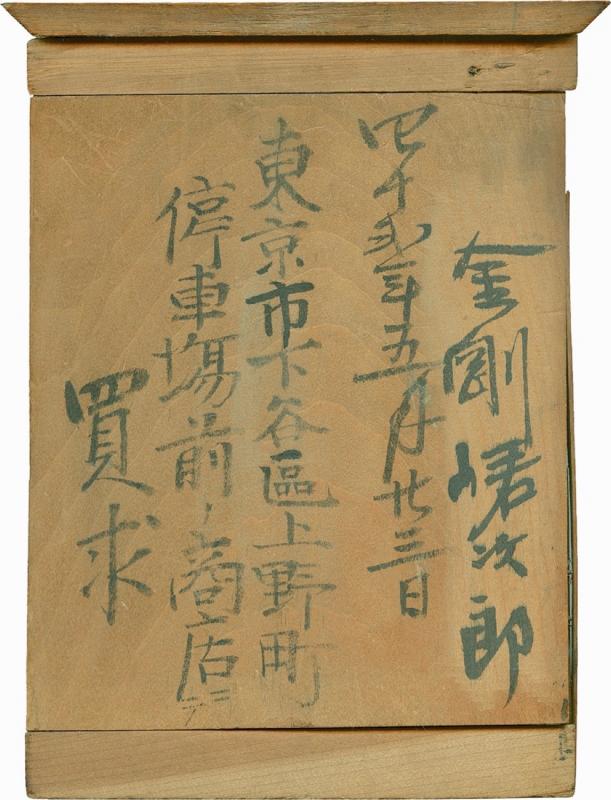 金剛㟢次郎
四十弐年五月廿三日
東京市下谷區上野町
停車場前ノ商店ニテ
買求